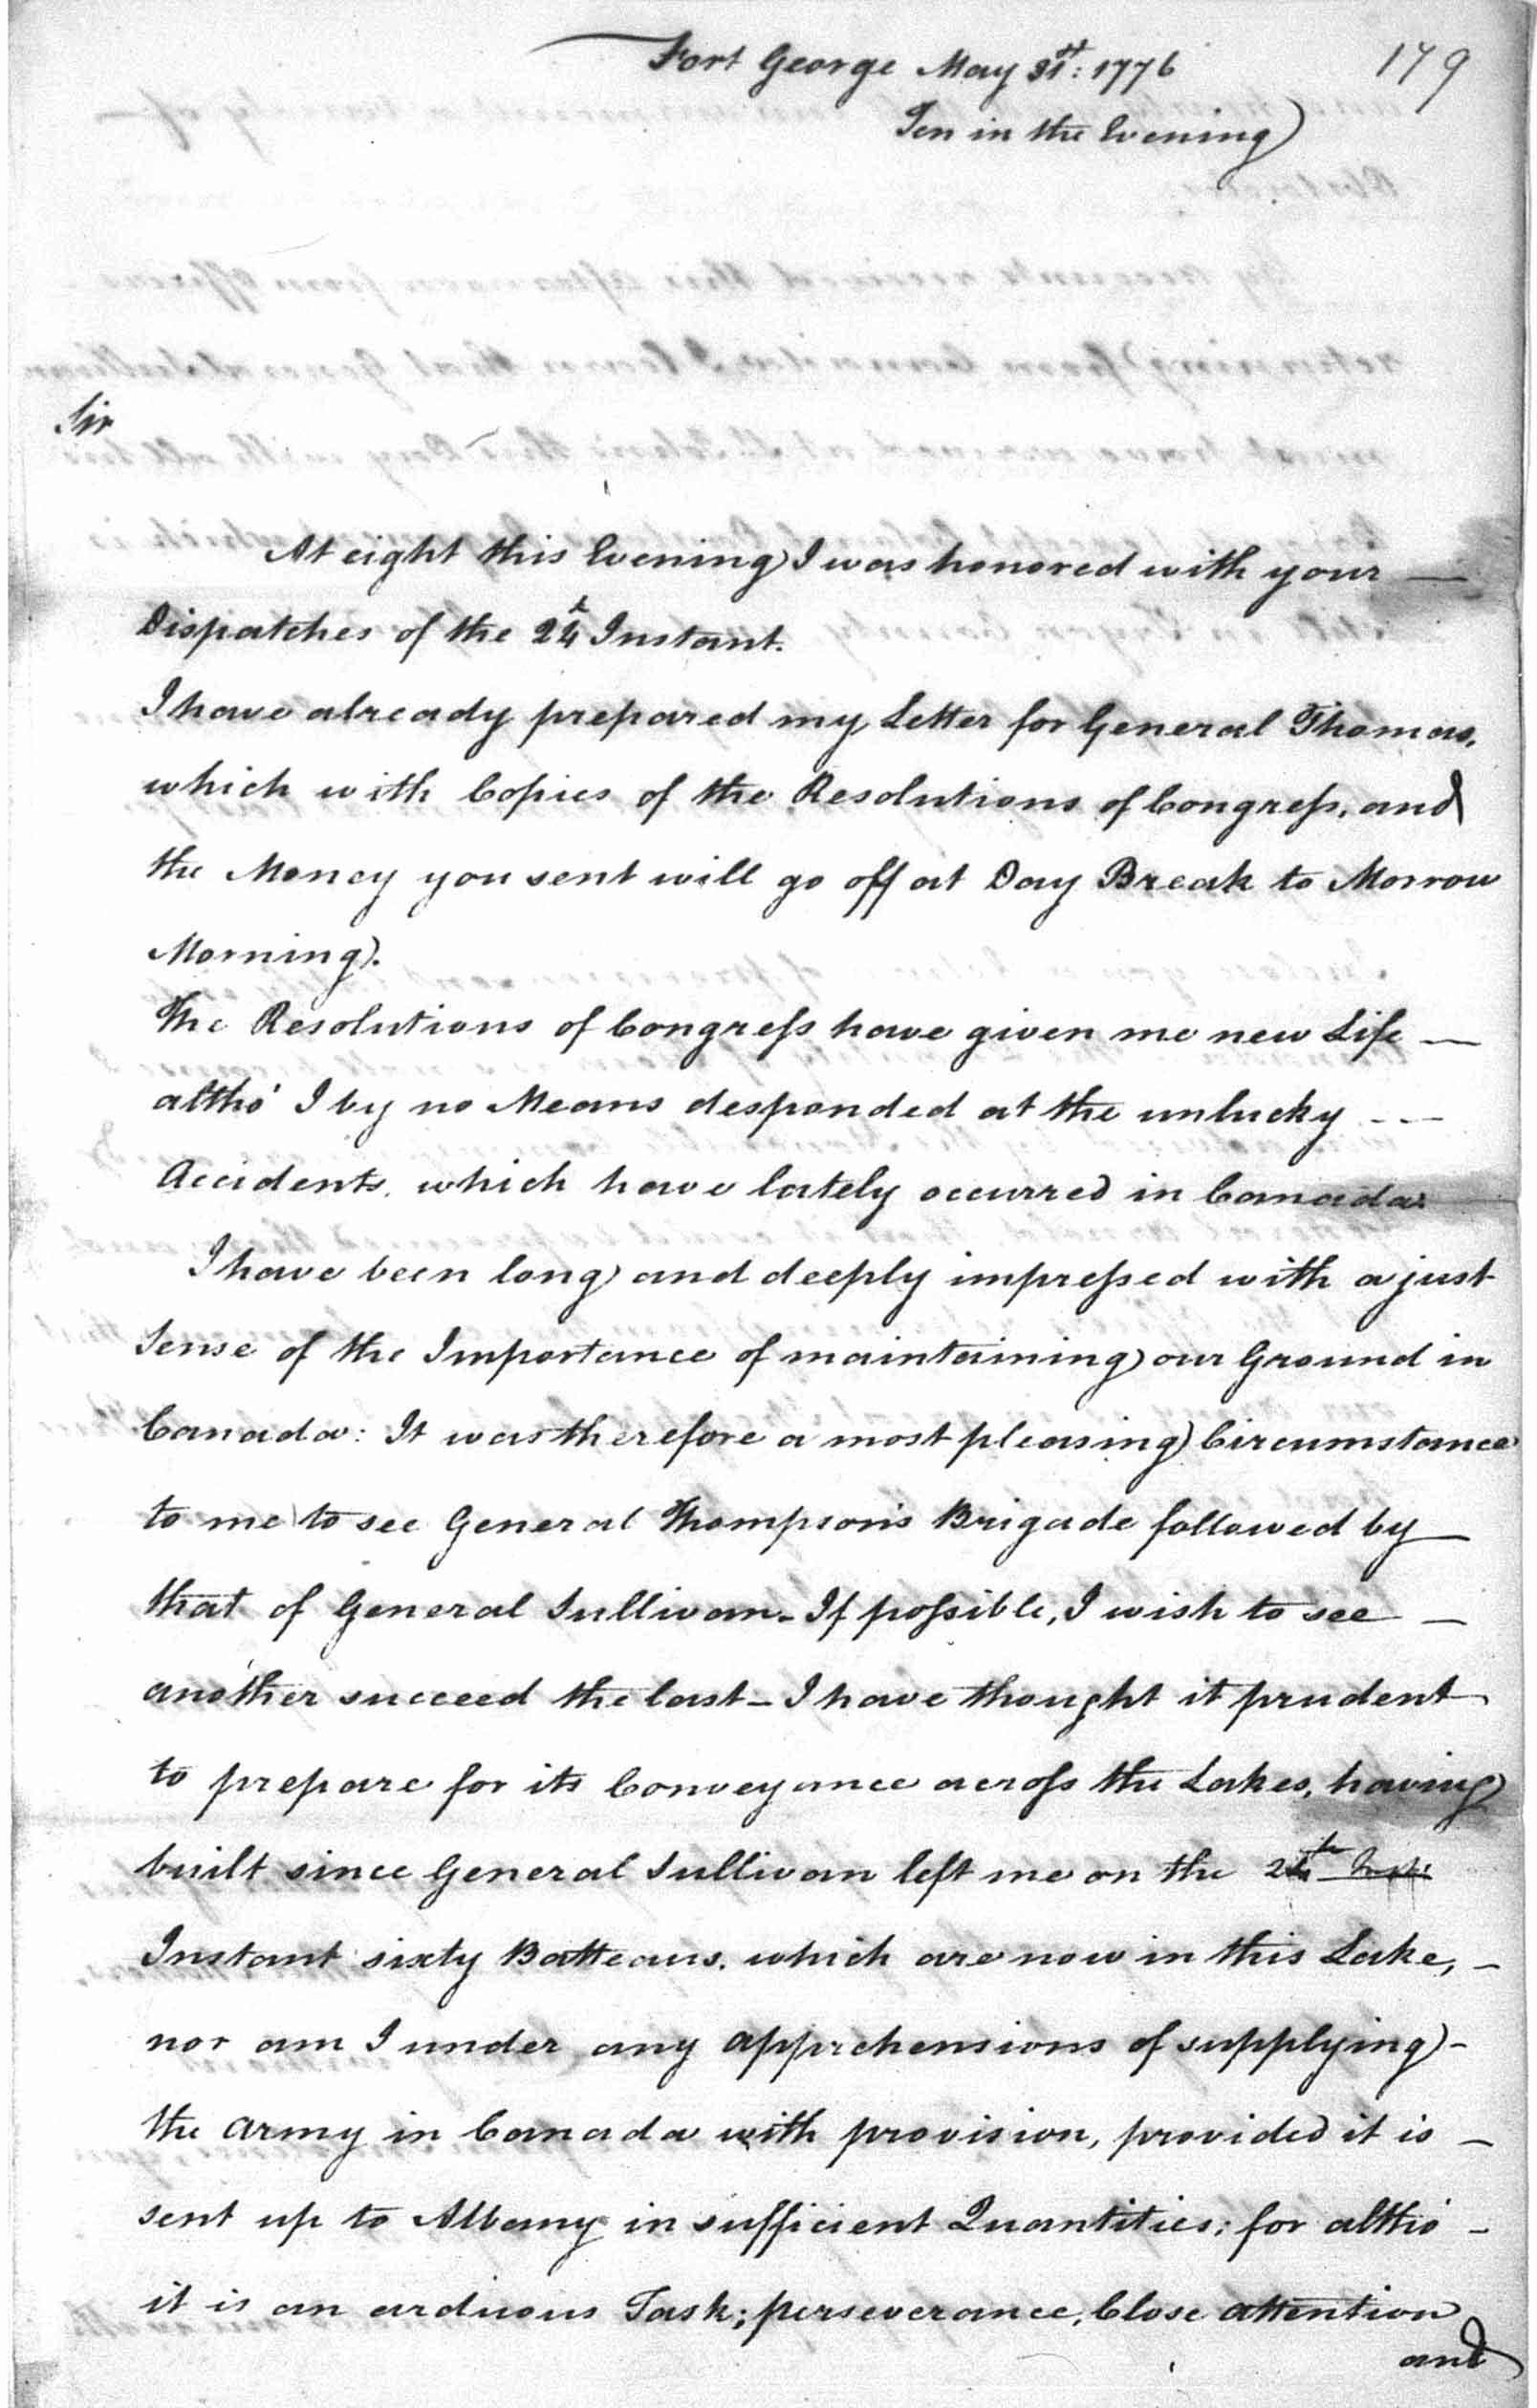 Fort George May 31st: 1776
179
Ten in the Evening
Sir
At eight this Evening I was honored with your —
Dispatches of the 24 Instant.
I have already prepared my Letter for General Thomas,
which with Copies of the Resolutions of Congreſs, and
the Money you sent will go off at Day Break to Morrow
Morning.
The Resolutions of Congreſs have given me new Life —
altho' I by no Means desponded at the unlucky - —
Accidents, which have lately occurred in Canada.
I have been long and deeply impreſsed with a just
Sense of the Importance of maintaining our Ground in
Canada: It was therefore a most pleasing Circumstance
to me to see General Thompson's Brigade followed by —
that of General Sullivan - If poſsible, I wish to see —
another succeed the last - I have thought it prudent
to prepare for its Conveyance acroſs the Lakes, having
built since General Sullivan left me on the 24th Inst:
Instant sixty Batteaus, which are now in this Lake, -
nor am I under any apprehensions of supplying -
the Army in Canada with provision, provided it is —
sent up to Albany in sufficient Quantities; for altho' -
it is an arduous Task; perseverance, Close attention
and